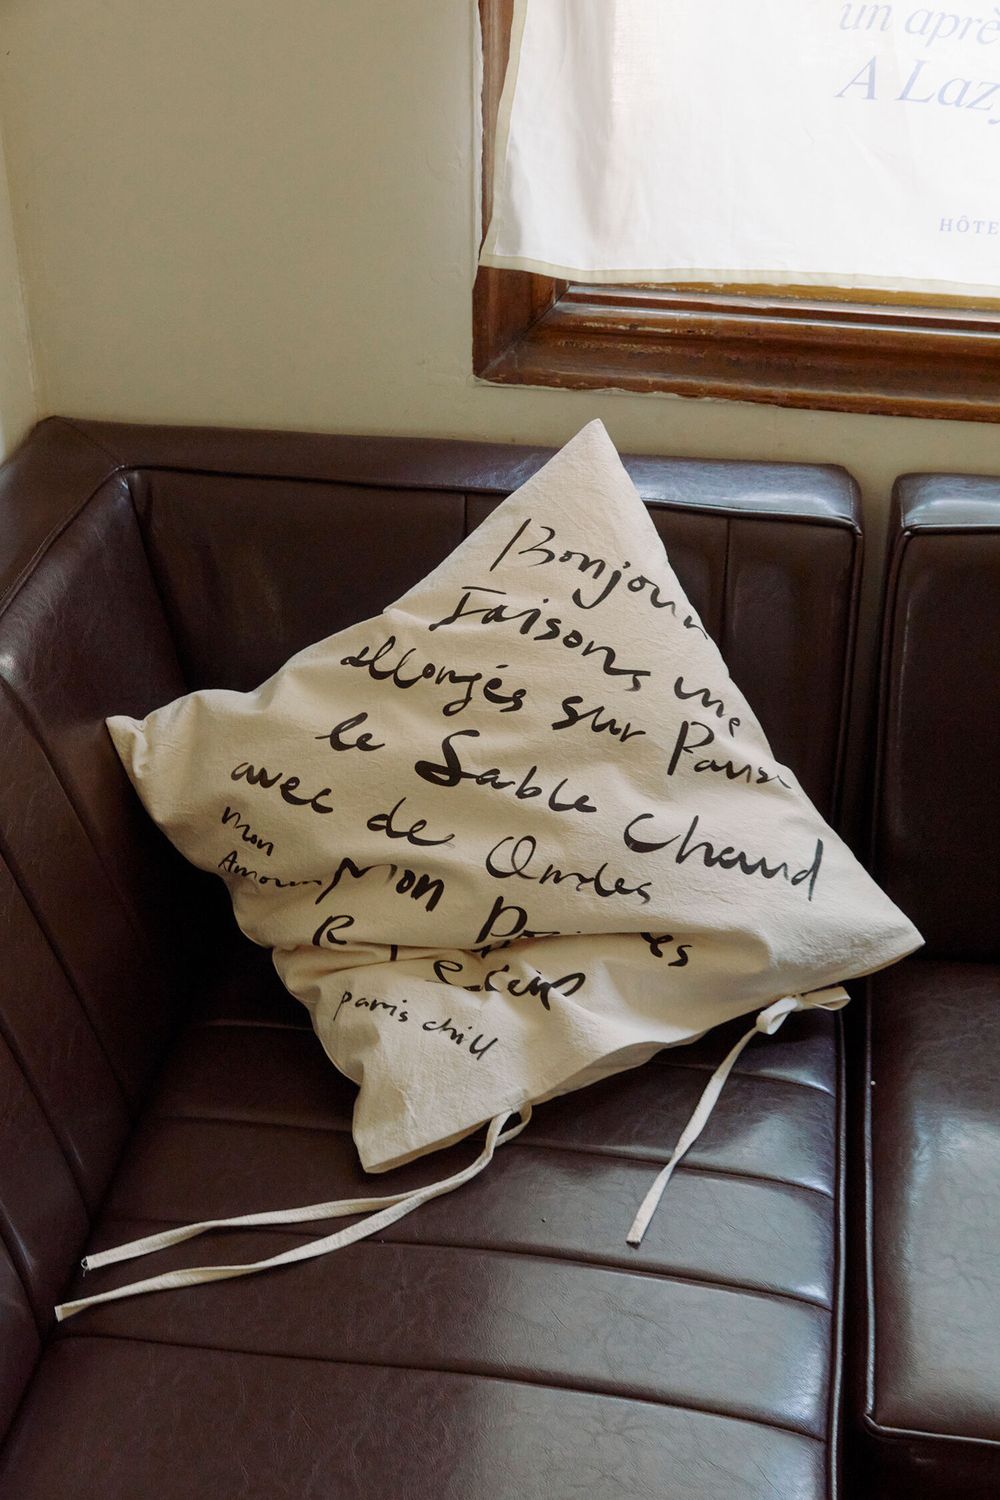 un aprè
A Lazy
HÔTE
Bonjour
Faisons une
allongés sur
le Sable Chaud
avec de Ondes
Mon
Amour
Mon
paris chill